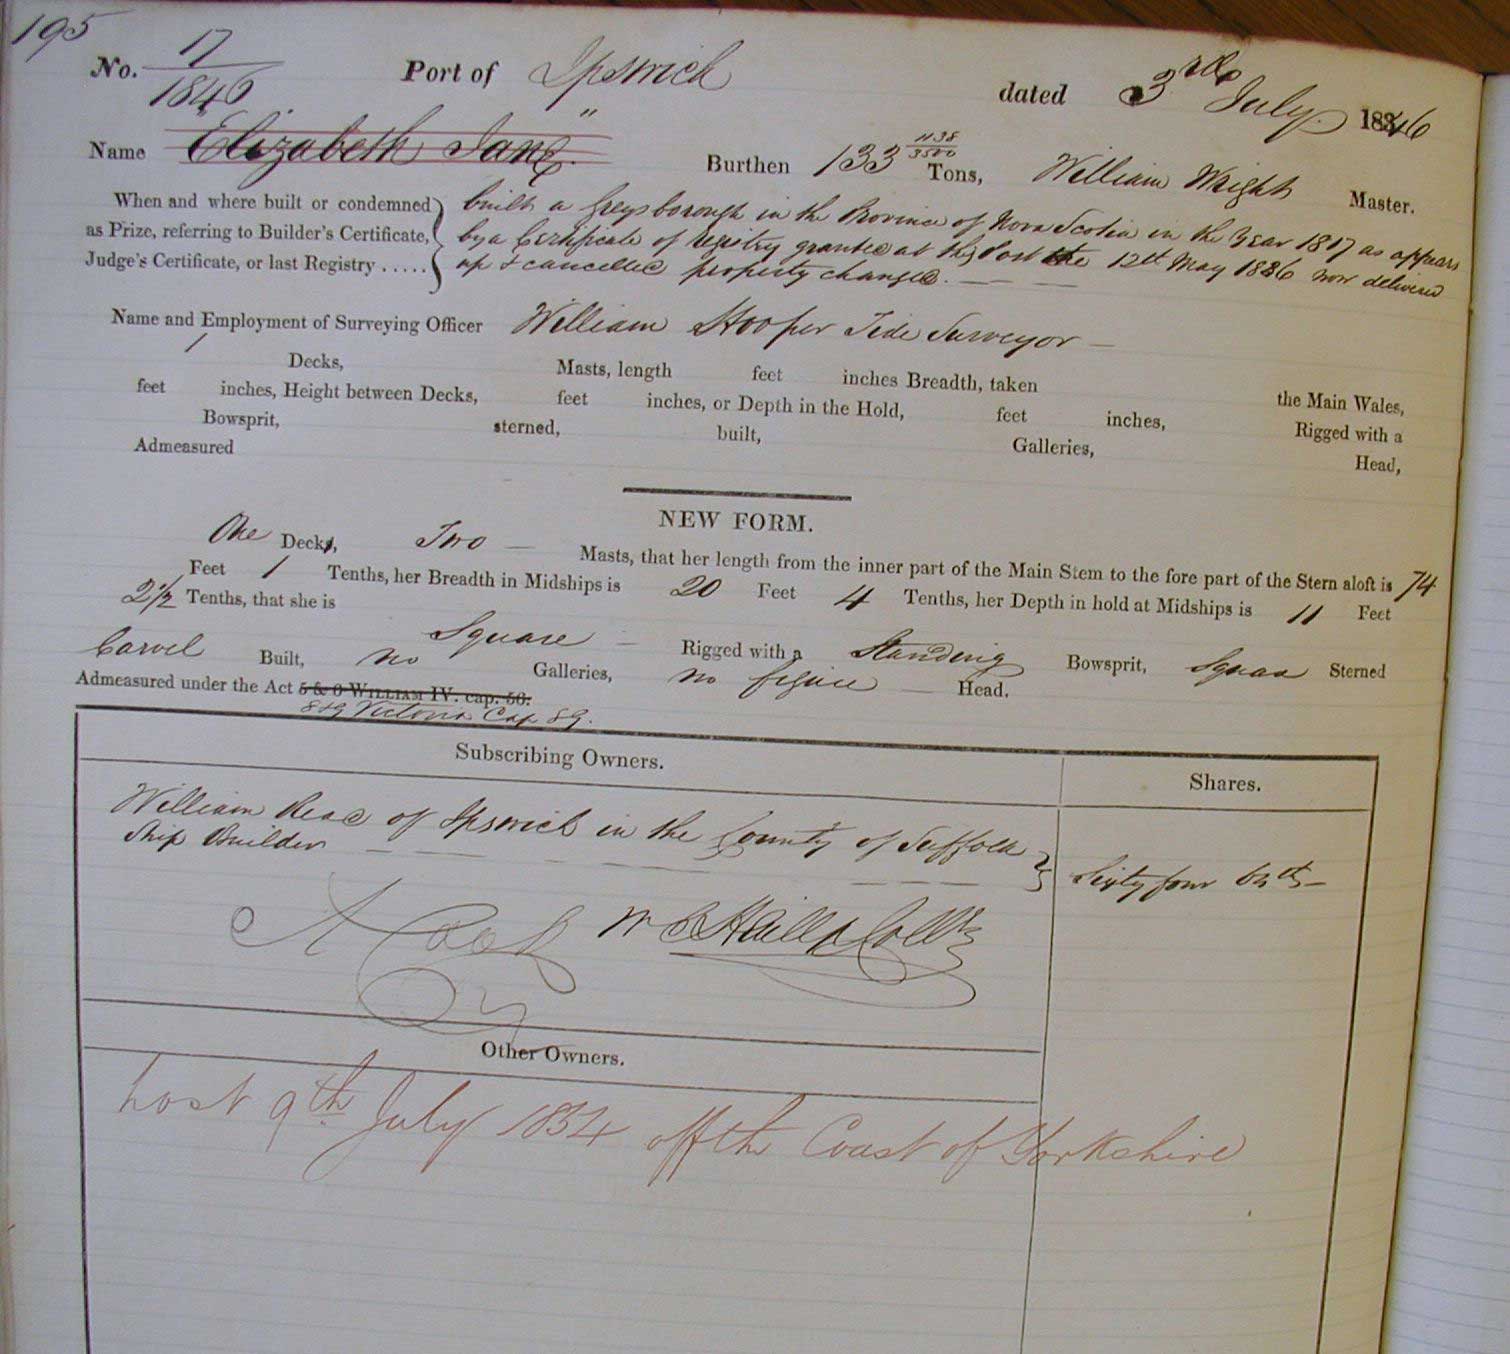 195
No. 17/1846 Port of Ipswich dated 3rd July 1846
Name "Elizabeth Jane" Burthen 133 1138/3500 Tons, William Wright Master.
When and where built or condemned as Prize, referring to Builder's Certificate, Judge's Certificate, or last Registry .....
built a Greysborough in the Province of Nova Scotia in the Year 1817 as appears
by a Certificate of registry granted at this Port the 12th May 1836 now delivered
up & cancelled property changed.
Name and Employment of Surveying Officer William Hooper Tide Surveyor
Decks, Masts, length feet inches Breadth, taken the Main Wales,
feet inches, Height between Decks, feet inches, or Depth in the Hold, feet inches, Rigged with a
Bowsprit, sterned, built, Galleries, Head,
Admeasured
NEW FORM.
One Deck, Two Masts, that her length from the inner part of the Main Stem to the fore part of the Stern aloft is 74
Feet 1 Tenths, her Breadth in Midships is 20 Feet 4 Tenths, her Depth in hold at Midships is 11 Feet
2 1/2 Tenths, that she is Square Rigged with a Standing Bowsprit, Square Sterned
Carvel Built, no Galleries, no figure Head.
Admeasured under the Act 5 & 6 WILLIAM IV. cap. 56.
8&9 Victoria Cap 89.
Subscribing Owners. Shares.
William Read of Ipswich in the County of Suffolk
Ship Builder Sixty four 64ths
Other Owners.
Lost 9th July 1854 off the Coast of Yorkshire